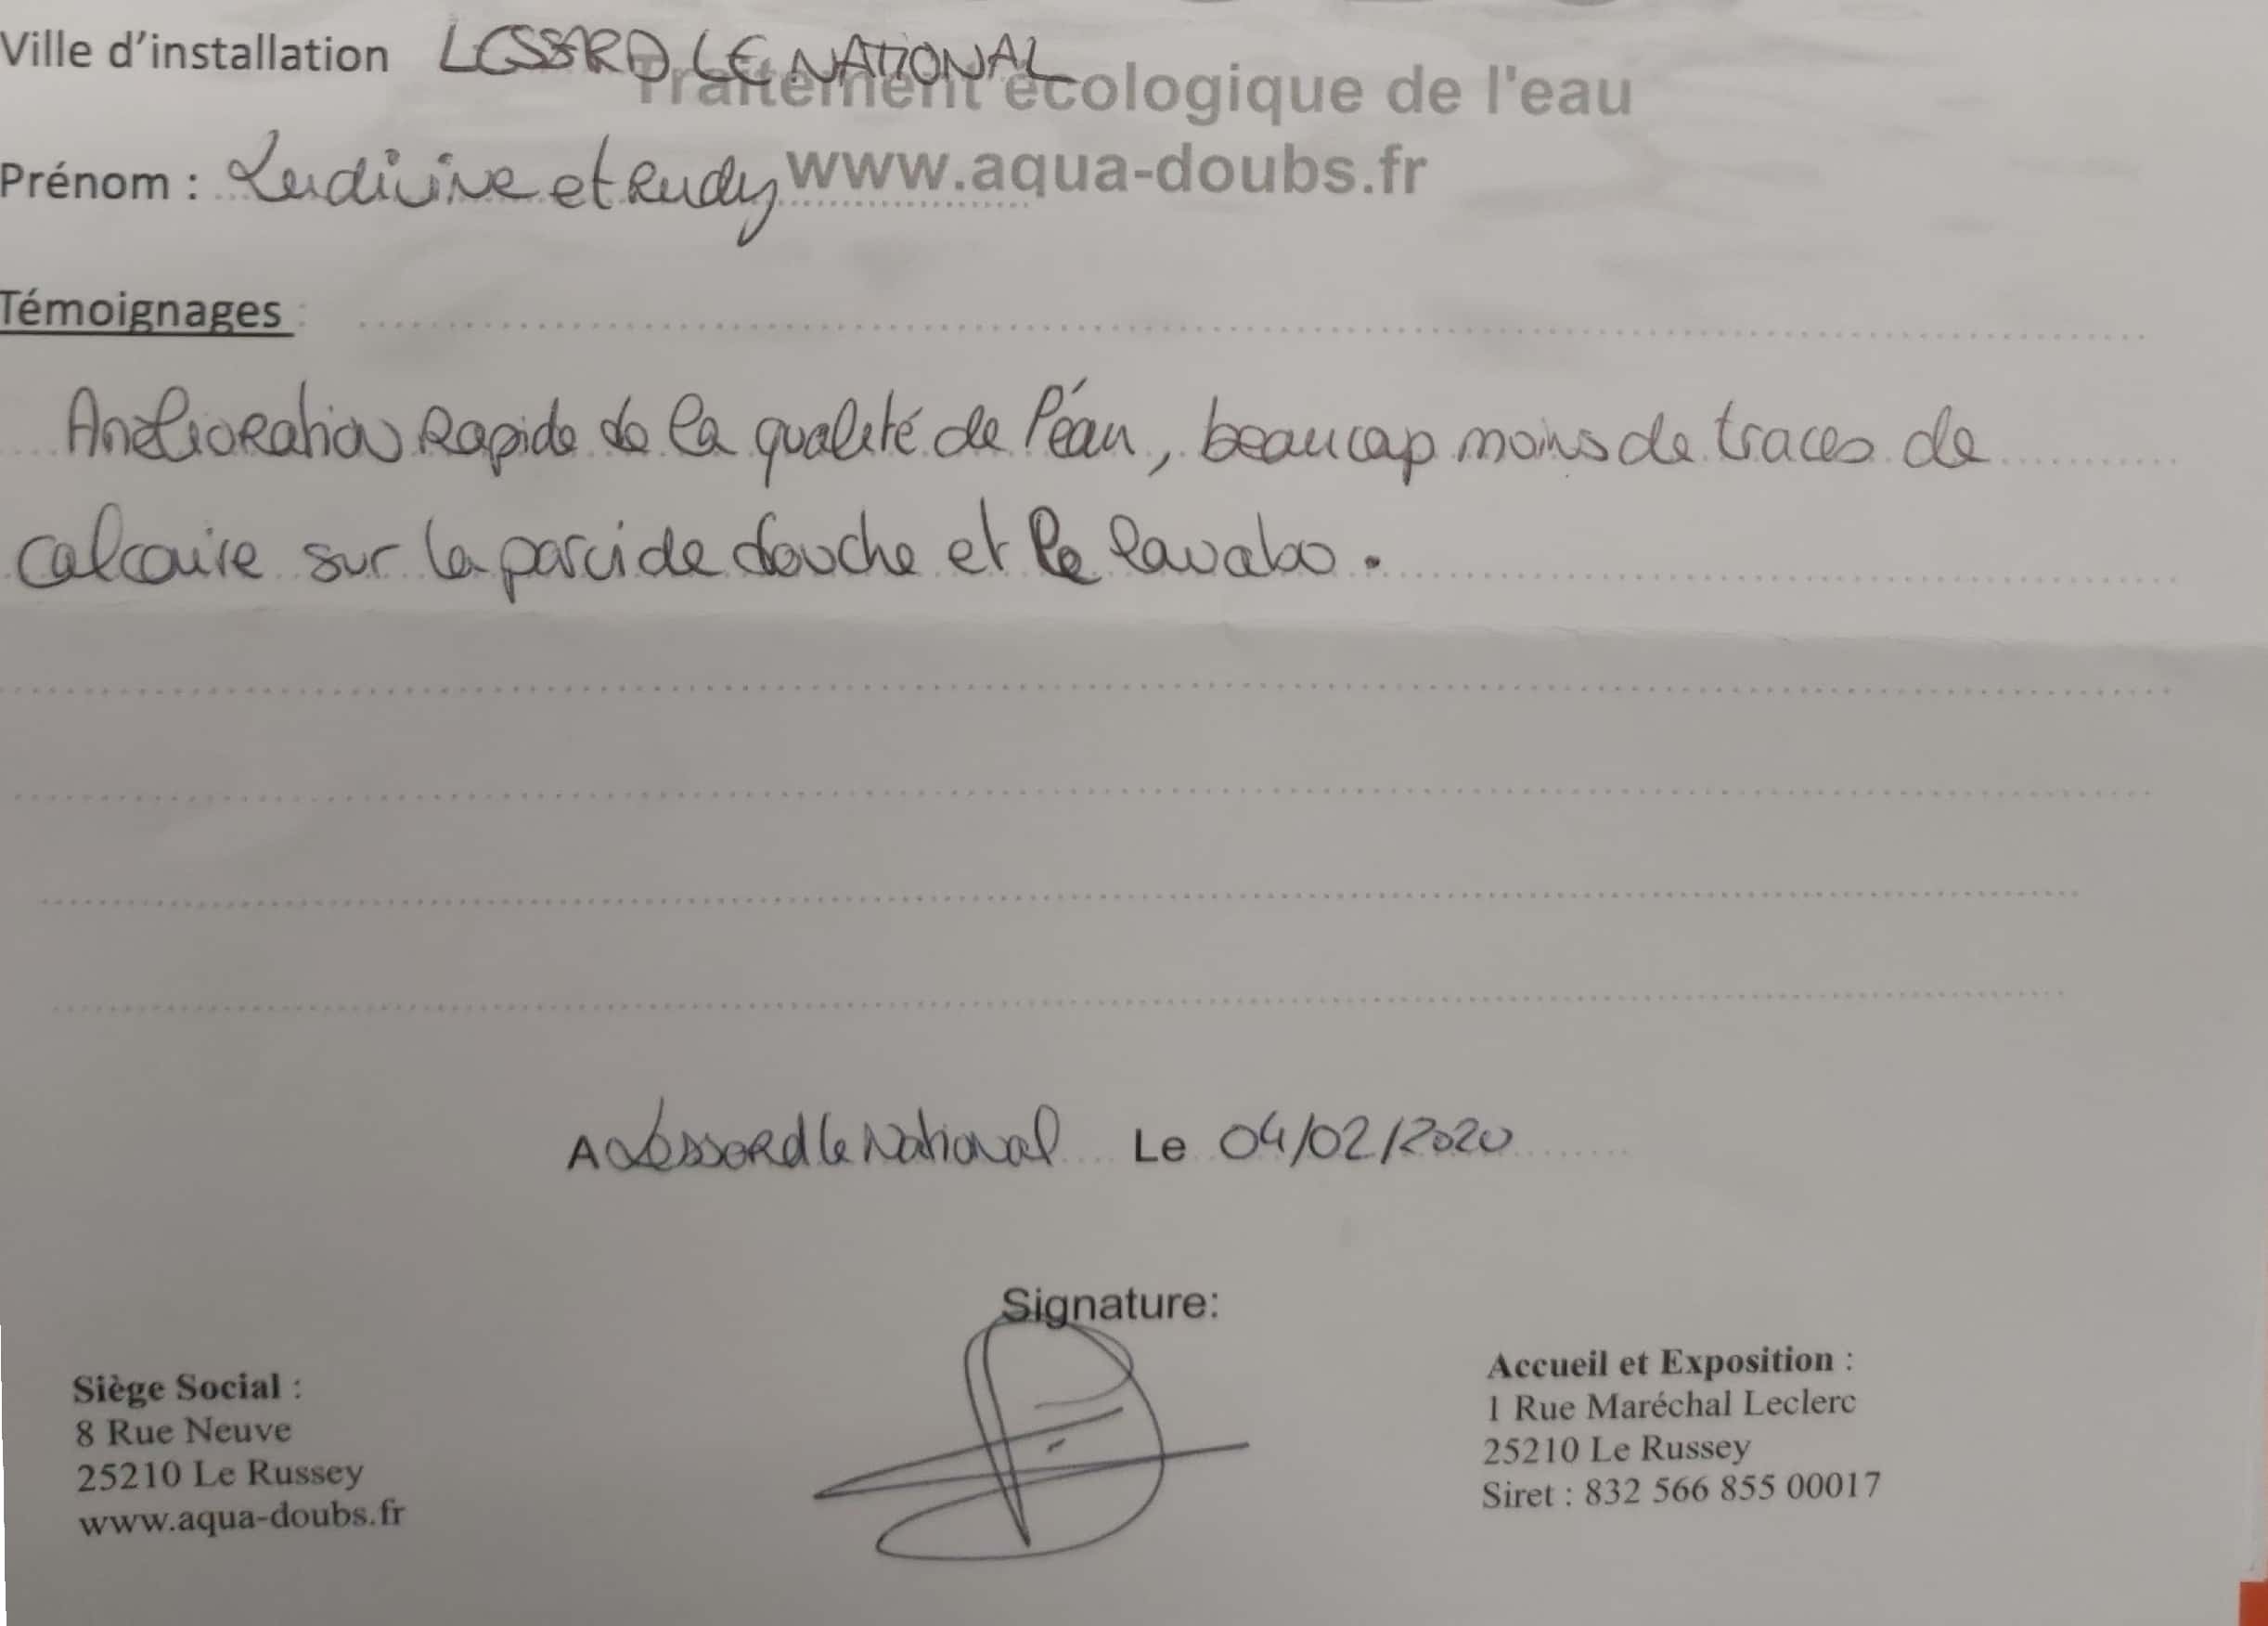 Ville d'installation LESSARD LE NATIONAL
Traitement écologique de l'eau
Prénom : Ludivine et Rudy www.aqua-doubs.fr
Témoignages :
Amélioration Rapide de la qualité de l'éau, beaucoup moins de traces de
calcaire sur la paroi de douche et le lavabo.
A Lessard le National Le 04/02/2020
Signature:
Siège Social :
8 Rue Neuve
25210 Le Russey
www.aqua-doubs.fr
Accueil et Exposition :
1 Rue Maréchal Leclerc
25210 Le Russey
Siret : 832 566 855 00017